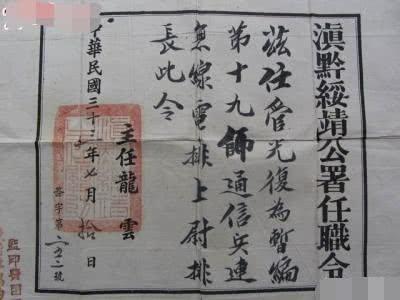 滇黔綏靖公署任職令
茲任管光復為暫編
第十九師通信兵連
無線電排上尉排
長此令
主任龍雲
中華民國三十三年七月拾日